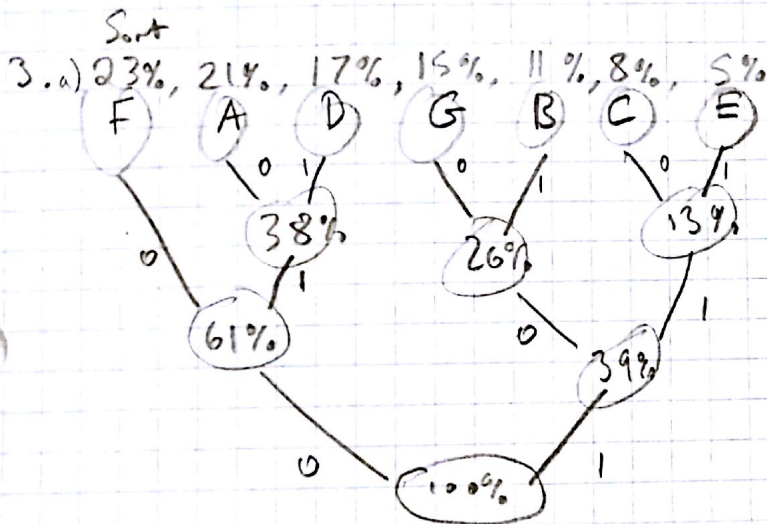 Sort
3.a) 23%, 21%, 17%, 15%, 11%, 8%, 5%
F A D G B C E
0 1 0 1 0 1
38% 26% 13%
0 1 0 1
61% 39%
0 1
100%